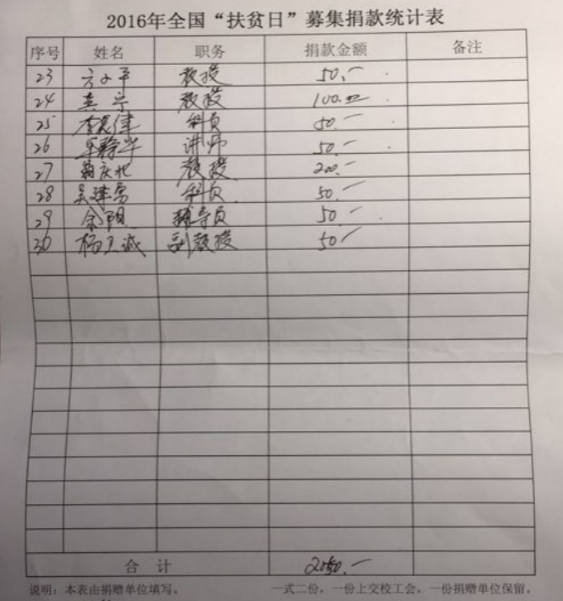 2016年全国“扶贫日”募集捐款统计表
序号 姓名 职务 捐款金额 备注
23 方小平 教授 50.-
24 袁宁 教授 100.00
25 科员 50.-
26 讲师 50.-
27 教授 200.-
28 科员 50.-
29 余阳 辅导员 50.-
30 杨 诚 副教授 50.-
合计 2050.-
说明：本表由捐赠单位填写。 一式二份，一份上交校工会，一份捐赠单位保留。